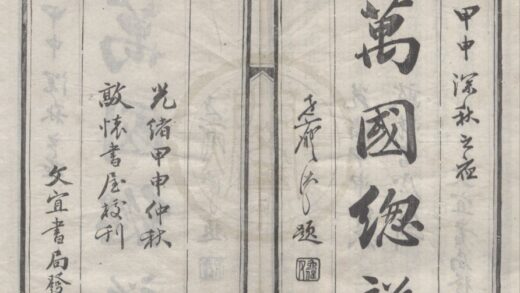 甲申深秋之夜
萬國緫說
題
光緒甲申仲秋
懷書屋校刊
文宜書局發